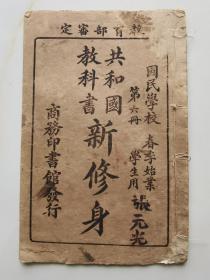 教育部審定
國民學校
春季始業
學生用
第六冊
共和國
教科書
新修身
商務印書館發行
張元光